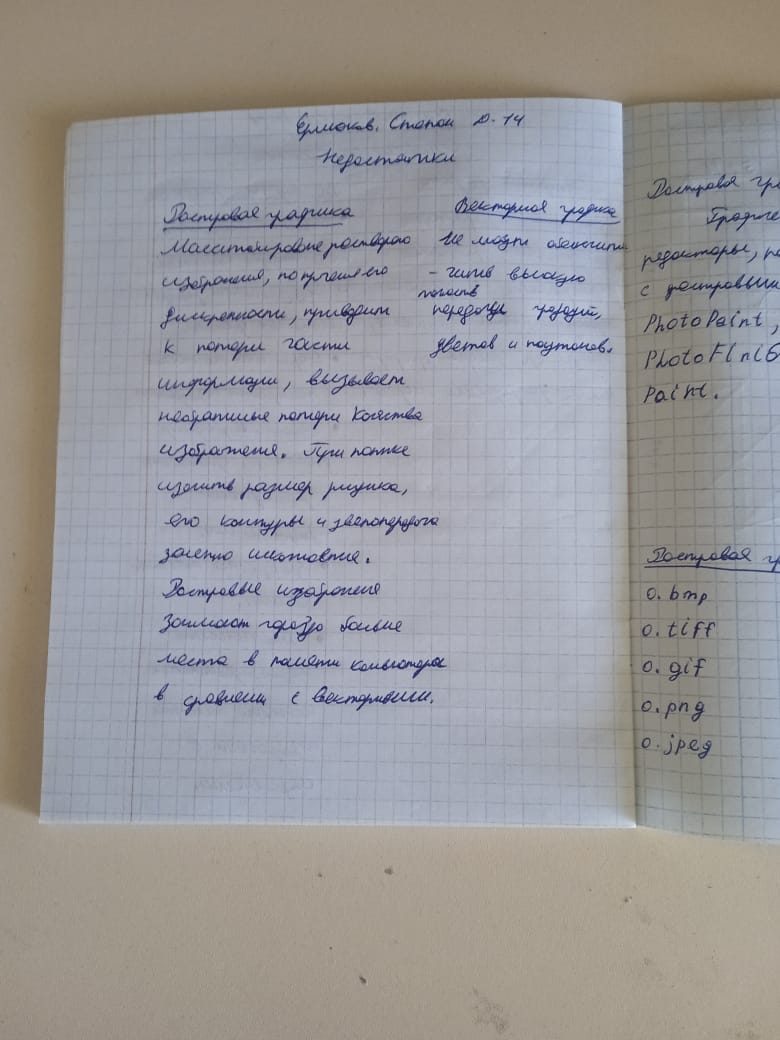 Ермоков. Степан D-14
Недостатки
Растровая графика
Масштабирование растрового
изображения, по причине его
дискретности, приводит
к потери части
информации, вызывает
необратимые потери качества
изображения. При
размер рисунка,
его контуры и
заметно
Растровые изображения
Занимают гораздо больше
места в памяти компьютера
в сравнении с векторными.
Векторная графика
Не могут обеспечить
высокую
передачи
цветов и полутонов.
Растровая гра
редакторы, ра
с растровыми
PhotoPaint,
PhotoFiniS
Paint.
Растровая г
o.bmp
o.tiff
o.gif
o.png
o.jpeg